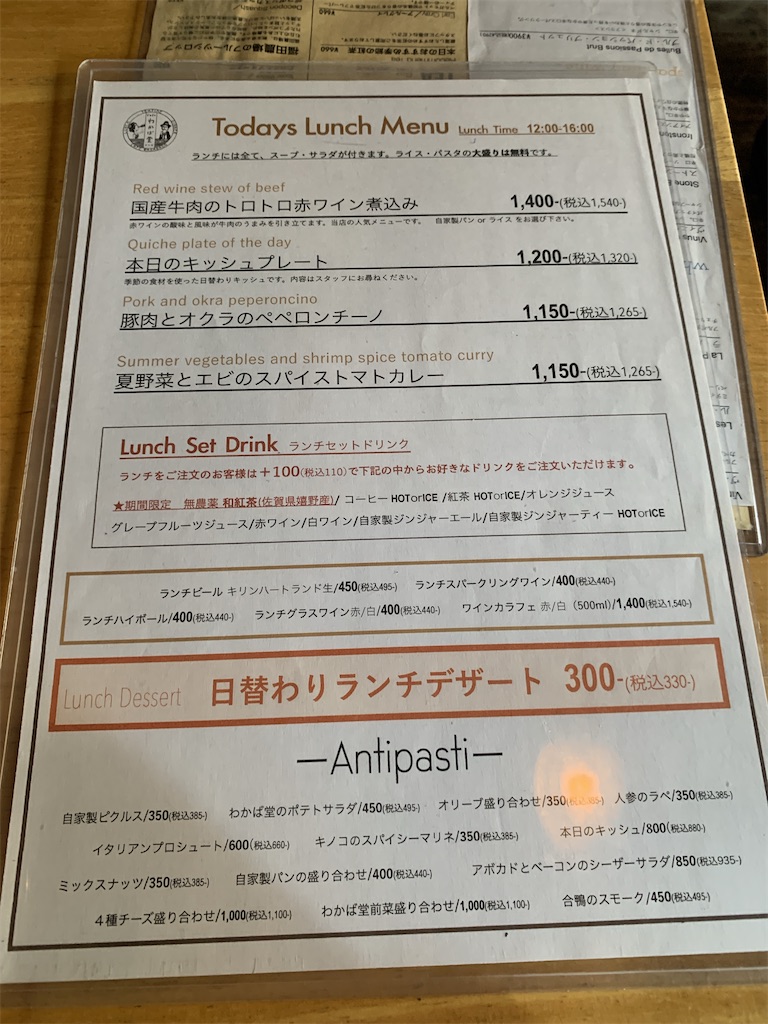 福田農場のフルーツシロップ
¥660
本日のおすすめ季節の紅茶 ¥660
ブル・ド・パッション・ブリュット
Bulles de Passions Brut
わかば堂
Todays Lunch Menu Lunch Time 12:00-16:00
ランチには全て、スープ・サラダが付きます。ライス・パスタの大盛りは無料です。
Red wine stew of beef
国産牛肉のトロトロ赤ワイン煮込み 1,400-(税込1,540-)
赤ワインの酸味と風味が牛肉のうまみを引き立てます。当店の人気メニューです。 自家製パン or ライス をお選び下さい。
Quiche plate of the day
本日のキッシュプレート 1,200-(税込1,320-)
季節の食材を使った日替わりキッシュです。内容はスタッフにお尋ねください。
Pork and okra peperoncino
豚肉とオクラのペペロンチーノ 1,150-(税込1,265-)
Summer vegetables and shrimp spice tomato curry
夏野菜とエビのスパイストマトカレー 1,150-(税込1,265-)
Lunch Set Drink ランチセットドリンク
ランチをご注文のお客様は＋100(税込110)で下記の中からお好きなドリンクをご注文いただけます。
★期間限定 無農薬 和紅茶(佐賀県嬉野産)/ コーヒー HOTorICE /紅茶 HOTorICE/オレンジジュース
グレープフルーツジュース/赤ワイン/白ワイン/自家製ジンジャーエール/自家製ジンジャーティー HOTorICE
ランチビール キリンハートランド生/450(税込495-) ランチスパークリングワイン/400(税込440-)
ランチハイボール/400(税込440-) ランチグラスワイン赤/白/400(税込440-) ワインカラフェ 赤/白（500ml)/1,400(税込1,540-)
Lunch Dessert 日替わりランチデザート 300-(税込330-)
—Antipasti—
自家製ピクルス/350(税込385-) わかば堂のポテトサラダ/450(税込495-) オリーブ盛り合わせ/350 人参のラペ/350(税込385-)
イタリアンプロシュート/600(税込660) キノコのスパイシーマリネ/350(税込385-) 本日のキッシュ/800(税込880)
ミックスナッツ/350(税込385-) 自家製パンの盛り合わせ/400(税込440) アボカドとベーコンのシーザーサラダ/850(税込935-)
４種チーズ盛り合わせ/1,000(税込1,100-) わかば堂前菜盛り合わせ/1,000(税込1,100-) 合鴨のスモーク/450(税込495-)